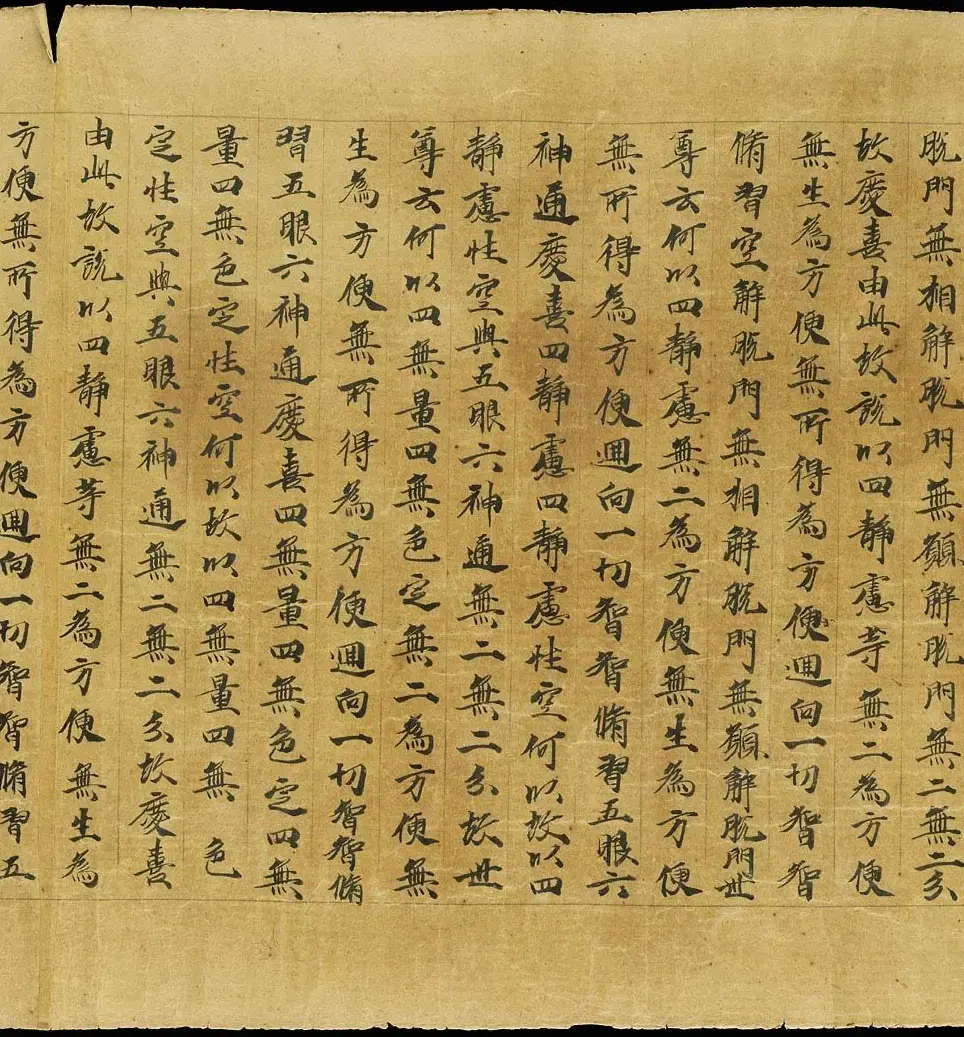 脫門無相解脫門無願解脫門無二無二分
故慶喜由此故說以四靜慮等無二為方便
無生為方便無所得為方便迴向一切智智
脩習空解脫門無相解脫門無願解脫門世
尊云何以四靜慮無二為方便無生為方便
無所得為方便迴向一切智智脩習五眼六
神通慶喜四靜慮四靜慮性空何以故以四
靜慮性空與五眼六神通無二無二分故世
尊云何以四無量四無色定無二為方便無
生為方便無所得為方便迴向一切智智脩
習五眼六神通慶喜四無量四無色定四無
量四無色定性空何以故以四無量四無色
定性空與五眼六神通無二無二分故慶喜
由此故說以四靜慮等無二為方便無生為
方便無所得為方便迴向一切智智脩習五